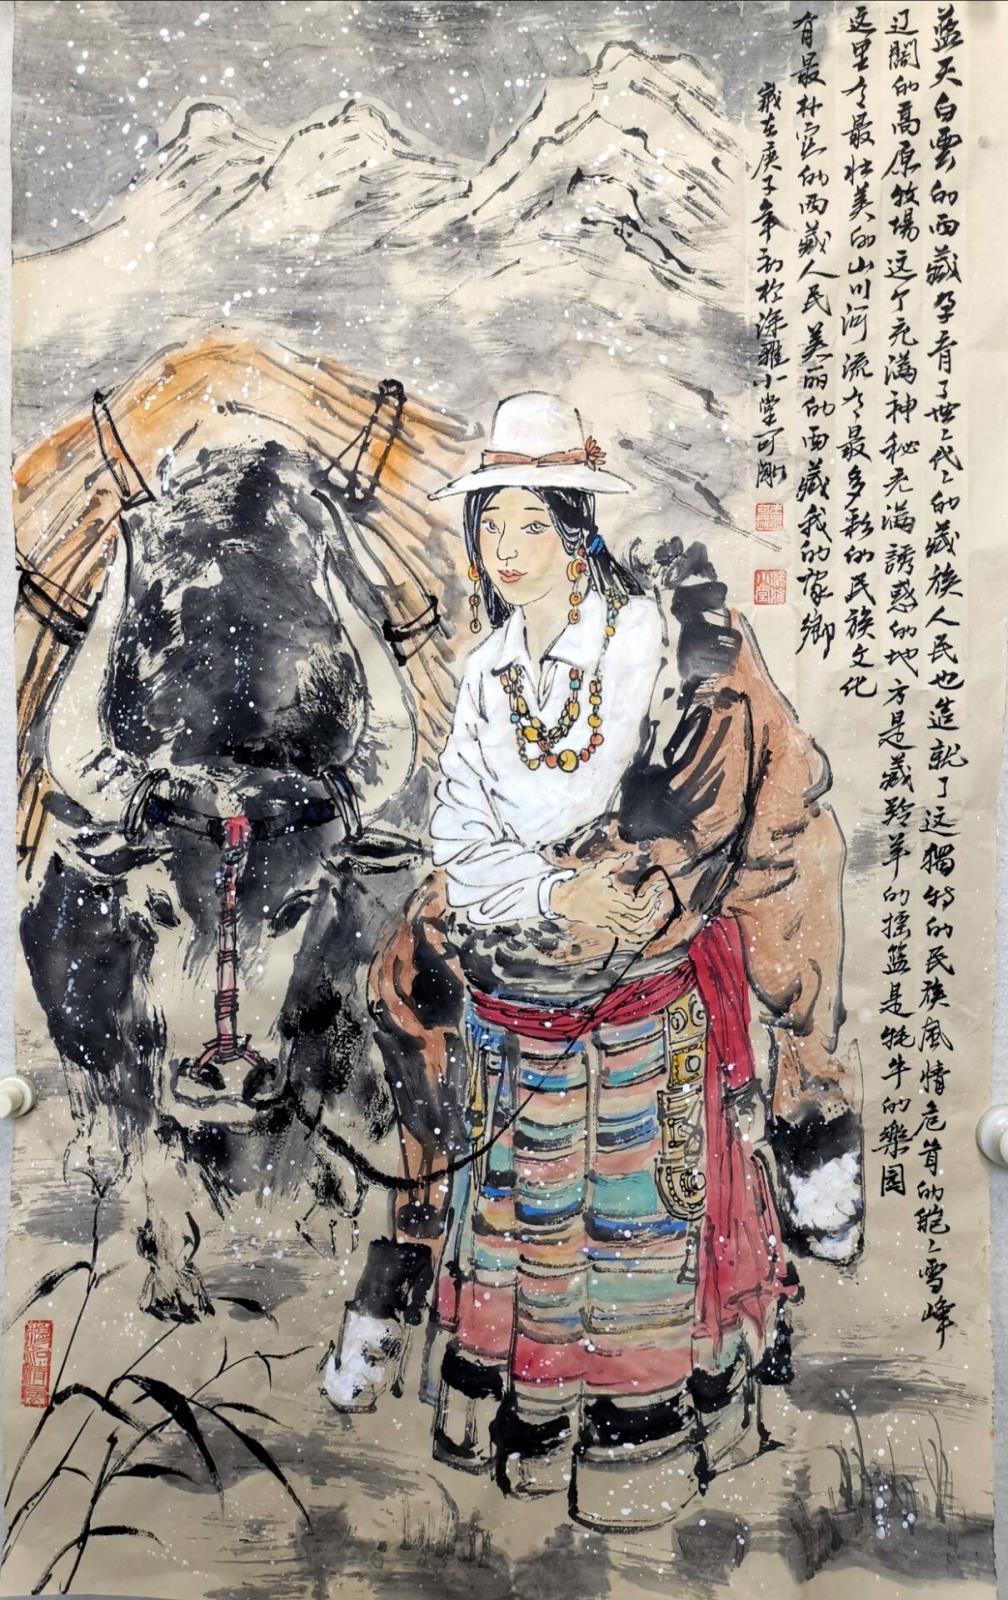 蓝天白雲的西藏孕育了世〻代〻的藏族人民也造就了这獨特的民族風情巍峨的皑〻雪峰
辽闊的高原牧場这个充满神秘充满誘惑的地方是藏羚羊的摇篮是牦牛的樂园
这里有最壮美的山川河流有最多彩的民族文化
有最朴实的西藏人民美丽的西藏我的家鄉
歲在庚子年初於涤雅小堂可